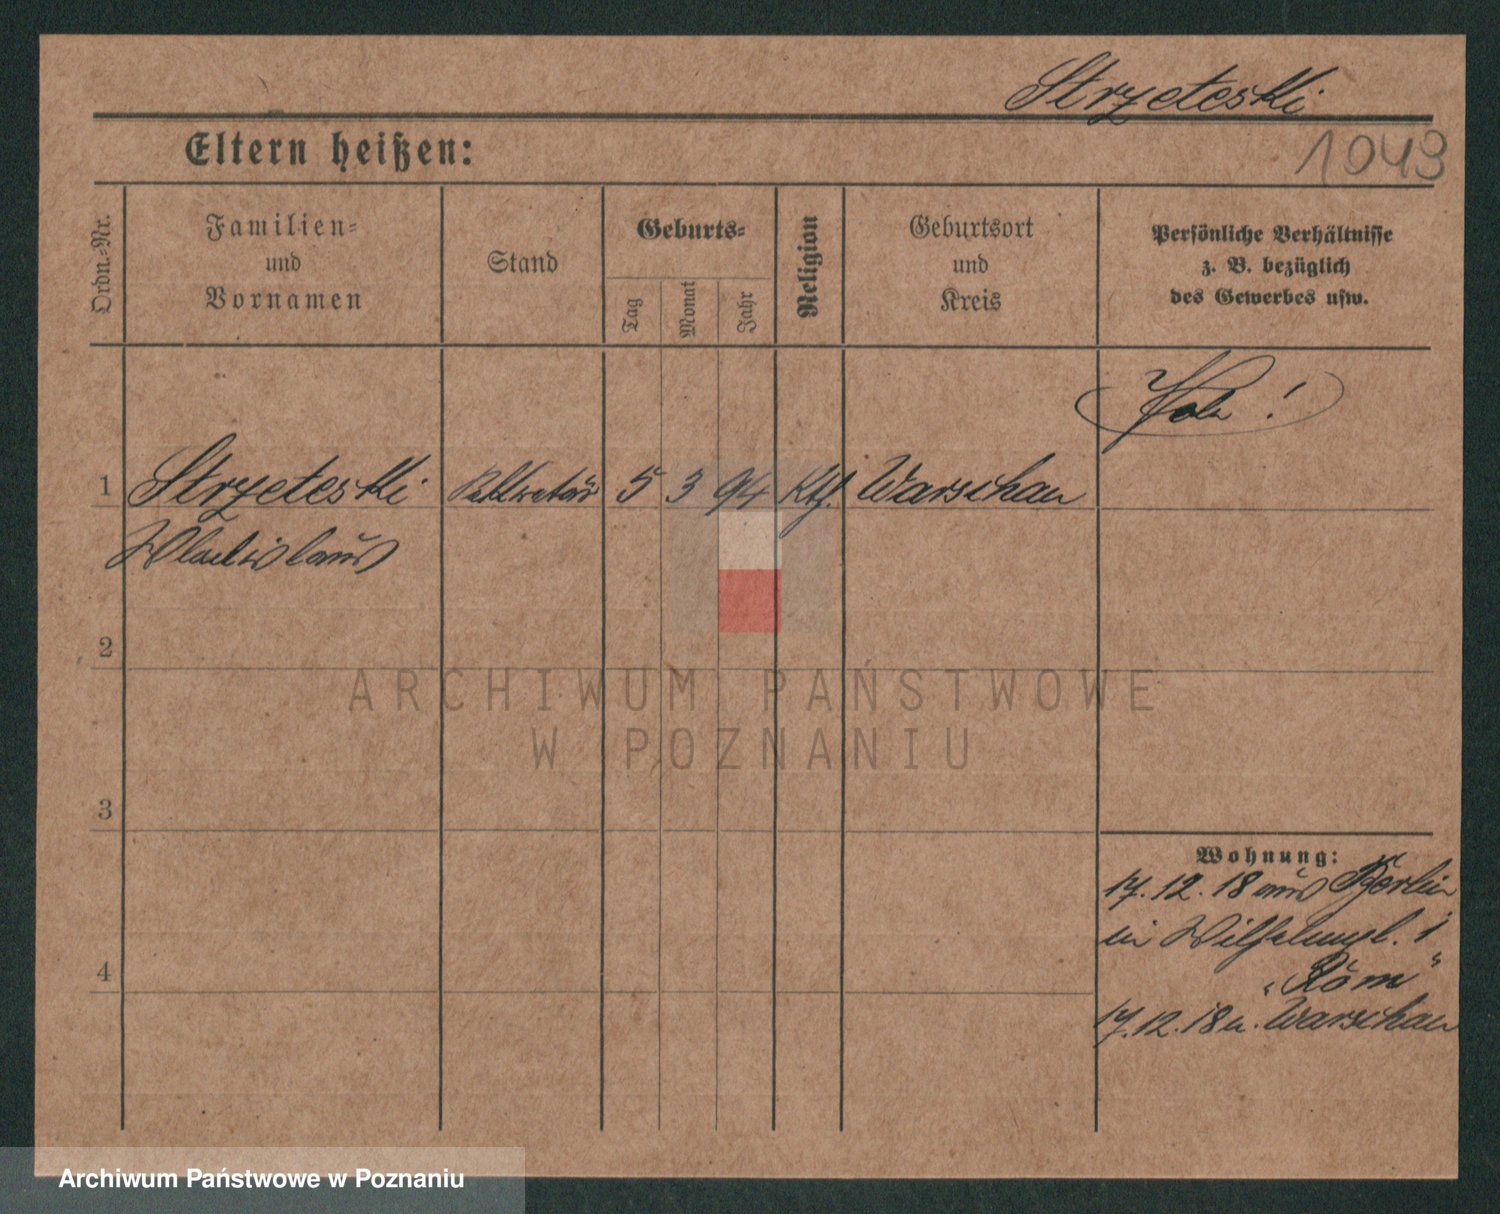 Strzeteski
1049
Eltern heißen:
Ordn.=Nr.
Familien=
und
Vornamen
Stand
Geburts=
Tag
Monat
Jahr
Religion
Geburtsort
und
Kreis
Persönliche Verhältnisse
z. B. bezüglich
des Gewerbes usw.
Pole !
1 Strzeteski 5 3 94 Kth. Warschau
Wladislaus
2
ARCHIWUM PAŃSTWOWE
W POZNANIU
3
Wohnung:
17.12.18 aus Berlin
in Wilhelmpl. 1
"Rom"
4
17.12.18 n. Warschau
Archiwum Państwowe w Poznaniu